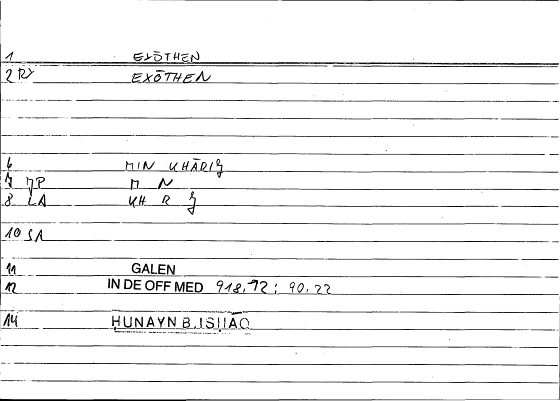 1 EXŌTHEN
2 RY EXŌTHEN
6 MIN KHĀRIJ
7 JP M N
8 LA KH R J
10 SA
11 GALEN
12 IN DE OFF MED 918.12; 90.22
14 HUNAYN B. ISHAQ